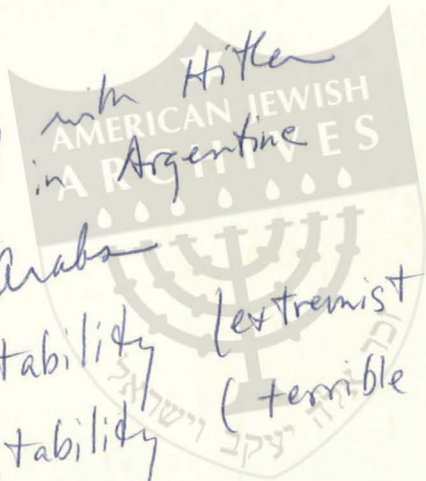 with Hitler
in Argentine
Arabs
tability (extremist
tability ( terrible
AMERICAN JEWISH
ARCHIVES
זכר אלה יעקב וישראל